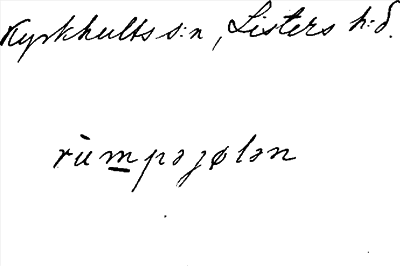 Kyrkhults s:n, Listers h:d.
rùm̲pəɟølən